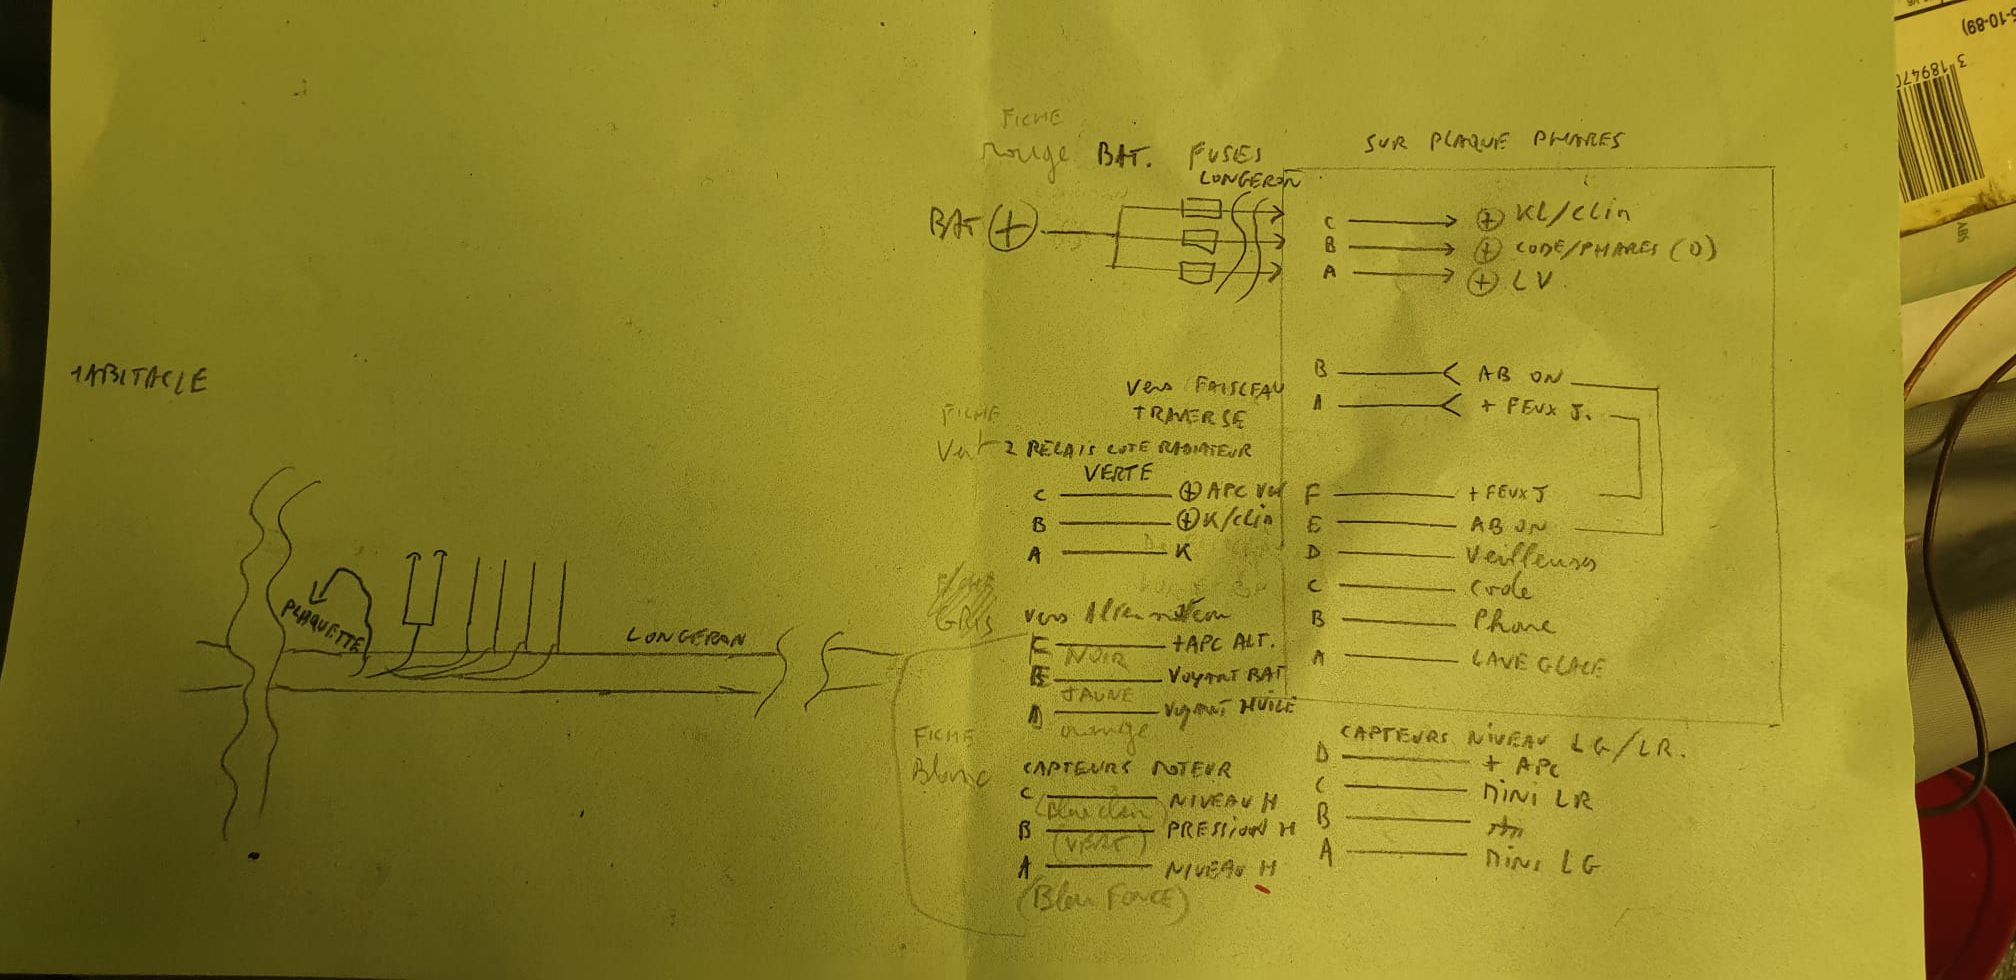 HABITACLE
PLAQUETTE
LONGERON
FICHE
rouge BAT. FUSES
LONGERON
BAT +
SUR PLAQUE PHARES
C + KL/Clin
B + CODE/PHARES (D)
A + LV
B AB ON
A + FEUX J.
F + FEUX J
E AB ON
D Veilleuses
C Code
B Phare
A LAVE GLACE
Vers FAISCEAU
TRAVERSE
FICHE
Vert 2 RELAIS COTE RADIATEUR
VERTE
C + APC
B + K/Clin
A K
GRIS
vers Alternateur
C +APC ALT.
NOIR
B VOYANT BAT
JAUNE
A VOYANT HUILE
orange
FICHE
Blanc
CAPTEURS MOTEUR
C NIVEAU H
(Bleu clair)
B PRESSION H
(VERT)
A NIVEAU H
(Bleu FONCE)
CAPTEURS NIVEAU LG/LR.
D + APC
C MINI LR
B
A MINI LG
3 18947
-10-89)